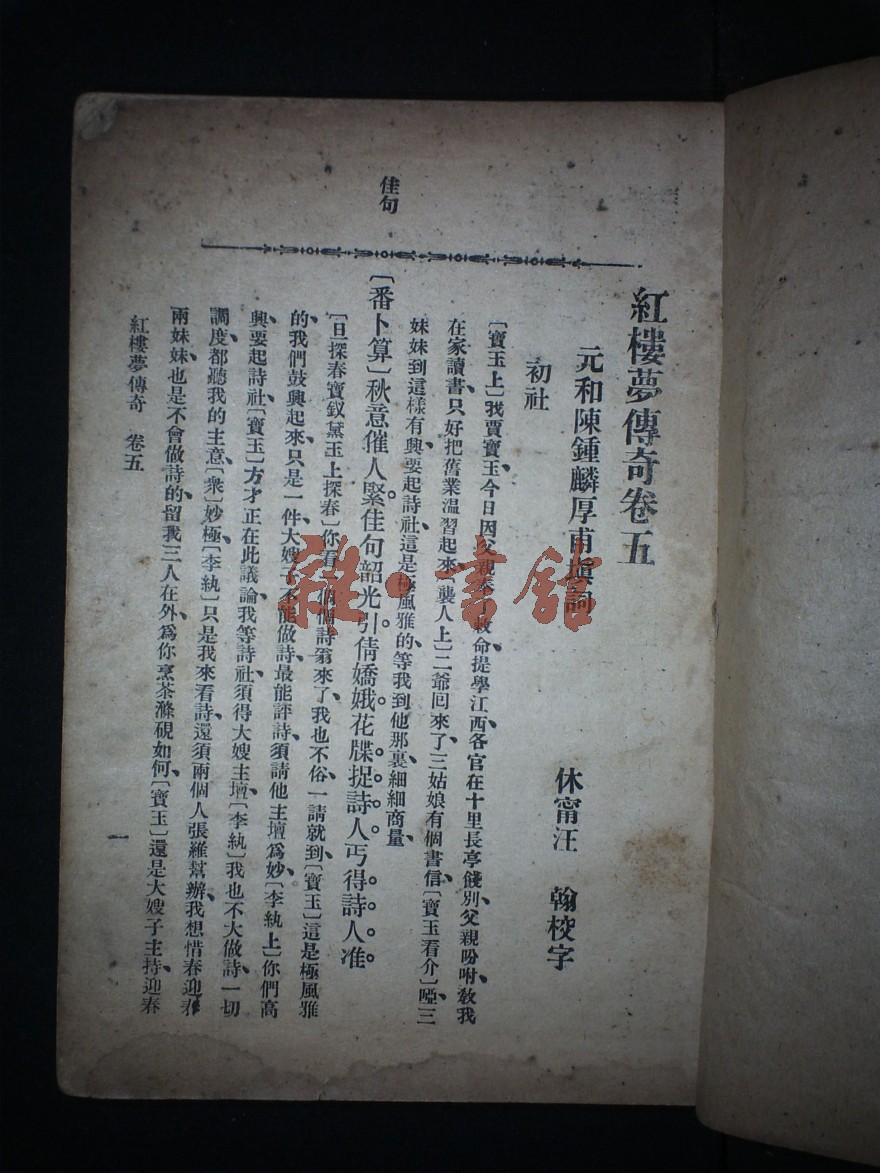 紅樓夢傳奇卷五
元和陳鍾麟厚甫塡詞
休甯汪 翰校字
初社
［寶玉上］我賈寶玉、今日因父親奉了敕命提學江西、各官在十里長亭餞別、父親吩咐敎我
在家讀書、只好把舊業溫習起來、［襲人上］二爺回來了、三姑娘有個書信、［寶玉看介］啞、三
妹妹到這樣有興、要起詩社、這是極風雅的、等我到他那裏細細商量、
佳句
［番卜算］秋意催人緊。佳句韶光引。倩嬌娥花牒捉詩人。丐得詩人准。
［旦探春寶釵黛玉上探春］你看一個個詩翁來了、我也不俗、一請就到、［寶玉］這是極風雅
的、我們鼓興起來、只是一件、大嫂子不能做詩、最能評詩、須請他主壇爲妙、［李紈上］你們高
興要起詩社、［寶玉］方才正在此議論、我等詩社、須得大嫂主壇、［李紈］我也不大做詩、一切
調度、都聽我的主意、［衆］妙極、［李紈］只是我來看詩、還須兩個人張羅幫辦、我想惜春迎春
兩妹妹、也是不會做詩的、留我三人在外、爲你烹茶滌硯如何、［寶玉］還是大嫂子主持、迎春
紅樓夢傳奇 卷五
一
雜·書館